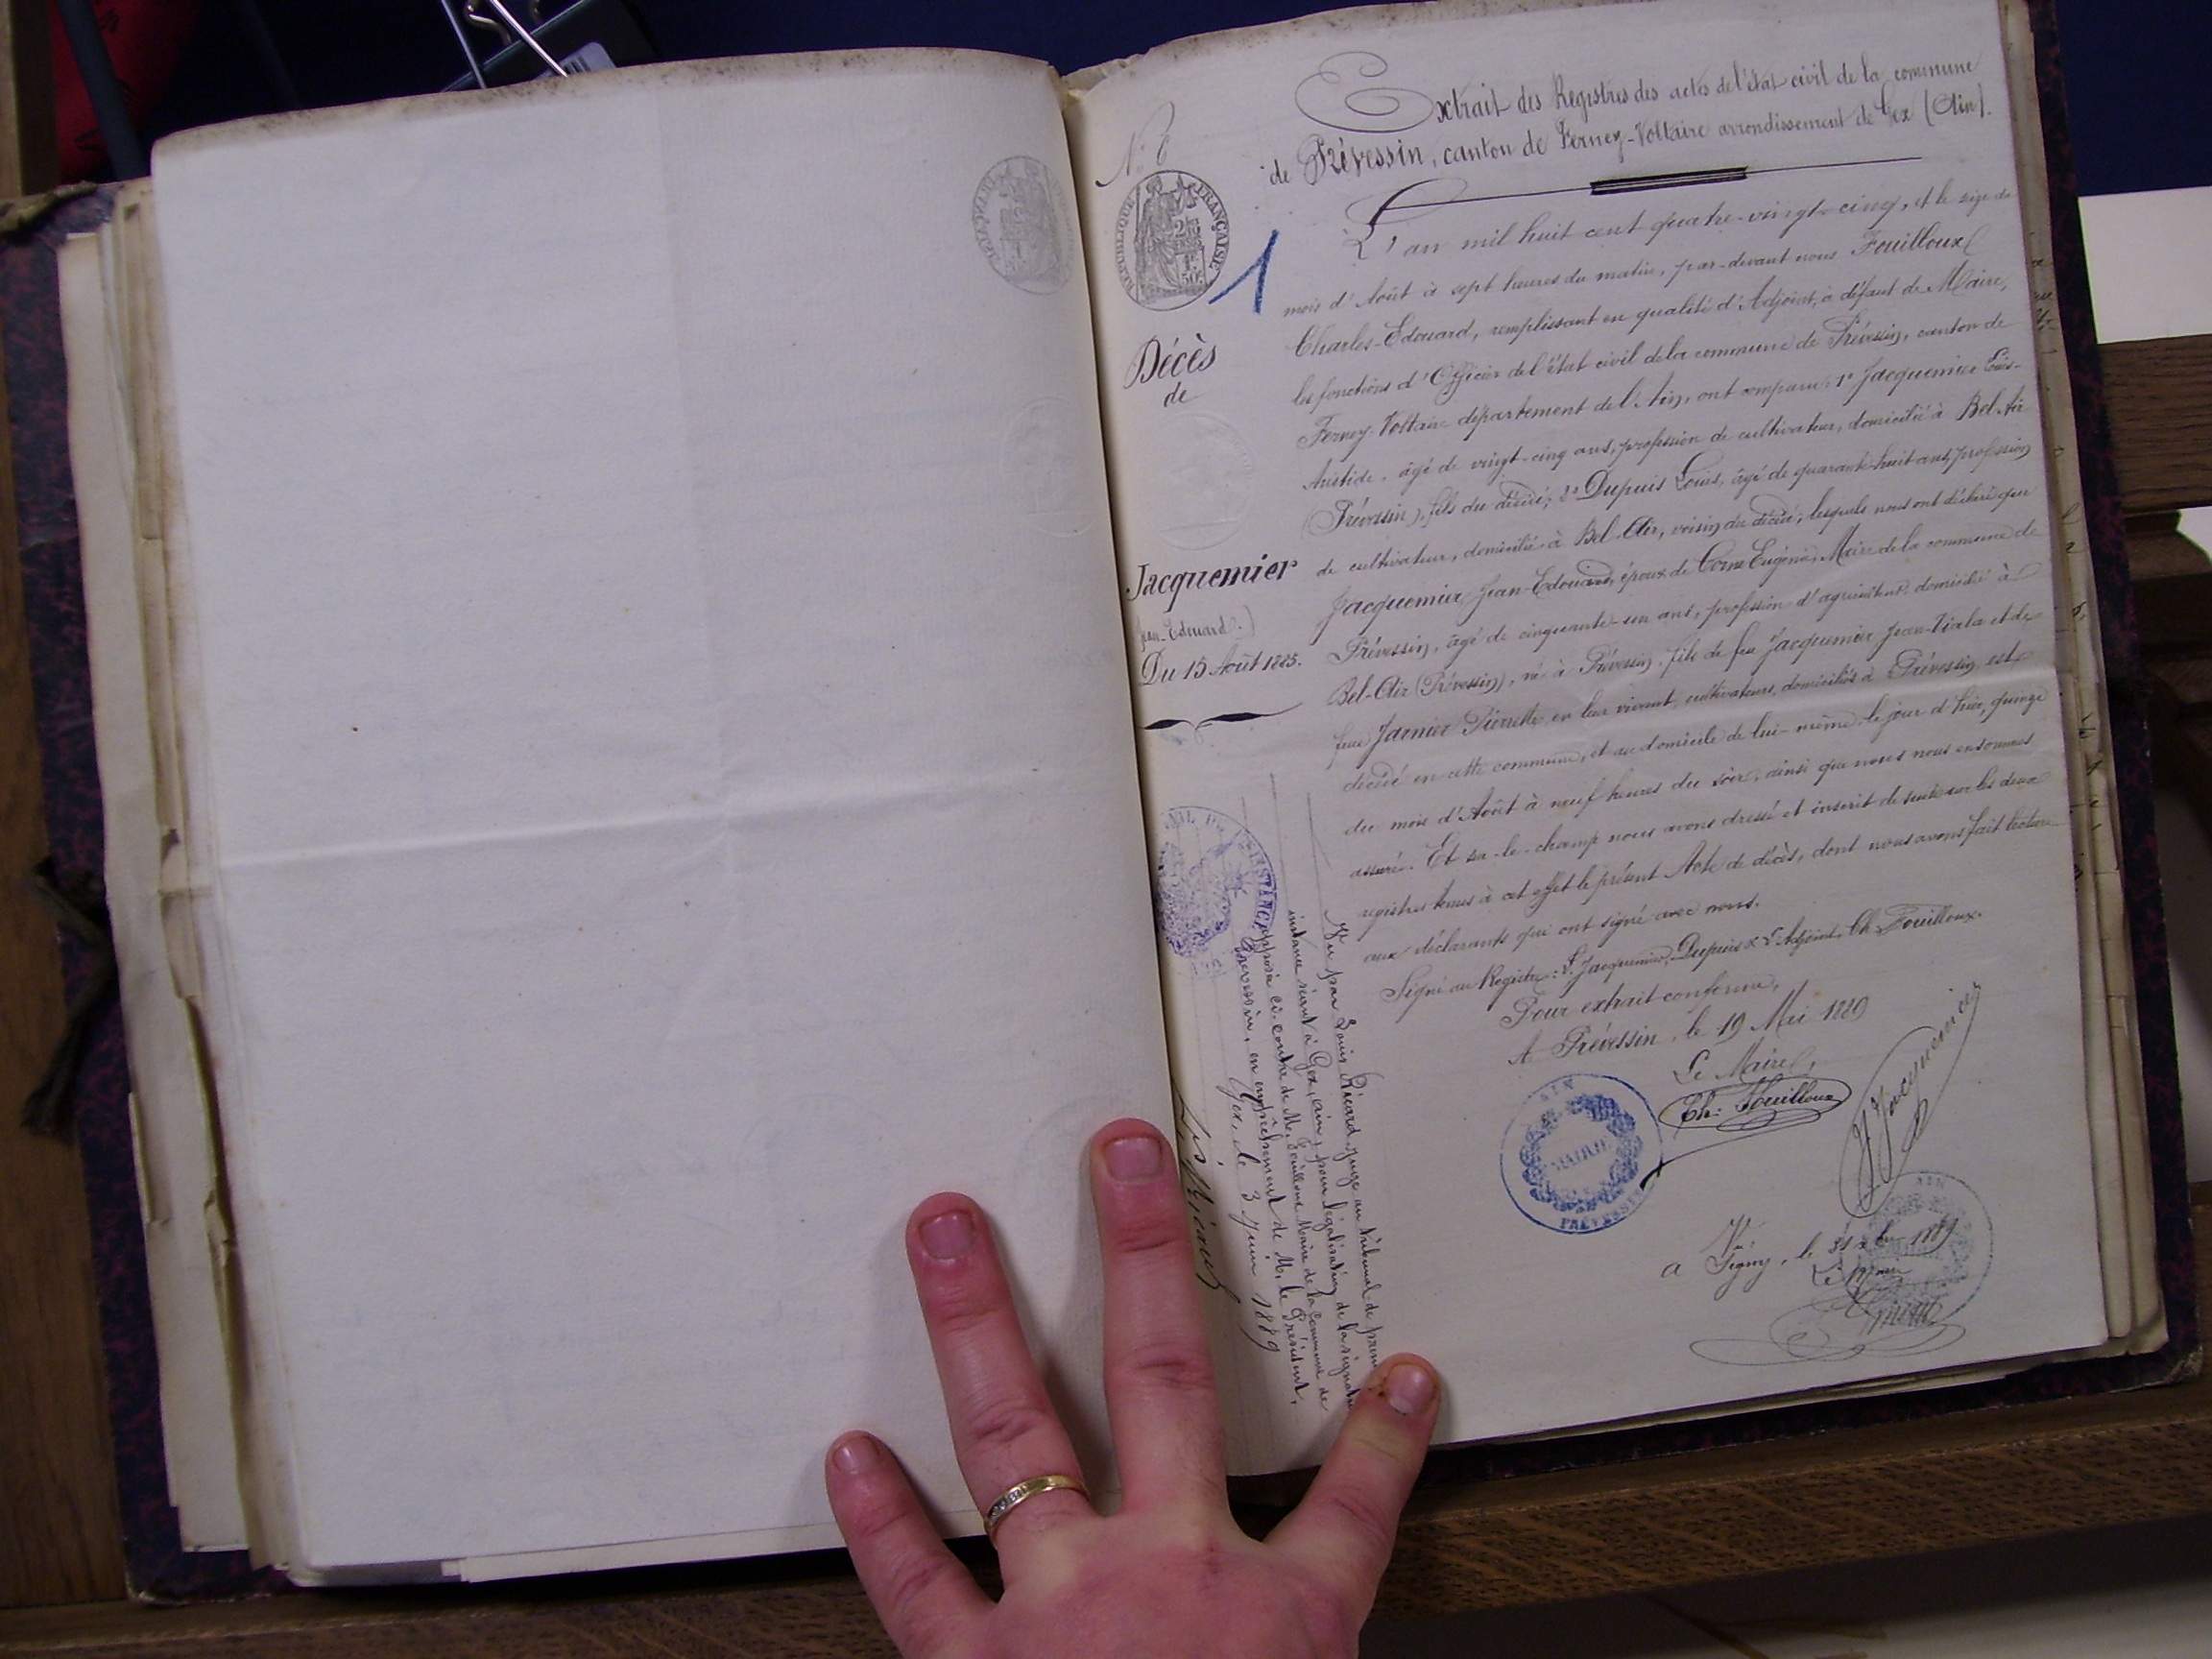 Extrait des Registres des actes de l'état civil de la commune
de Prévessin, canton de Ferney-Voltaire arrondissement de Gex (Ain).
N° 6
RÉPUBLIQUE FRANÇAISE
1
Décès
de
Jacquemier
Jean-Edouard.)
Du 15 Août 1885.
L'an mil huit cent quatre-vingt-cinq, et le seize du
mois d'Août à sept heures du matin, par-devant nous Fouilloux
Charles-Edouard, remplissant en qualité d'Adjoint, à défaut de Maire,
les fonctions d'Officier de l'état civil de la commune de Prévessin, canton de
Ferney-Voltaire département de l'Ain, ont comparu: 1° Jacquemier Louis-
Aristide, âgé de vingt-cinq ans, profession de cultivateur, domicilié à Bel-Air
(Prévessin), fils du décédé; 2° Dupuis Louis, âgé de quarante-huit ans, profession
de cultivateur, domicilié à Bel-Air, voisin du décédé; lesquels nous ont déclaré que
Jacquemier Jean-Edouard, époux de Eugénie, Maire de la commune de
Prévessin, âgé de cinquante-un ans, profession d'agriculteur, domicilié à
Bel-Air (Prévessin), né à Prévessin, fils de feu Jacquemier Jean- et de
feue Jarnier Pierrette en leur vivant, cultivateurs, domiciliés à Prévessin, est
décédé en cette commune, et au domicile de lui-même le jour d'hier, quinze
du mois d'Août à neuf heures du soir, ainsi que nous nous en sommes
assuré. Et sur-le-champ nous avons dressé et inscrit de suite sur les deux
registres tenus à cet effet le présent Acte de décès, dont nous avons fait lecture
aux déclarants qui ont signé avec nous.
Signé au Registre: L. Jacquemier, Dupuis & L'Adjoint, Ch. Fouilloux.
Pour extrait conforme,
A Prévessin, le 19 Mai 1889
Le Maire,
Ch: Fouilloux
Jacquemier
AIN
MAIRIE
PRÉVESSIN
Vu
a Ségny, le 31 1889
Le Maire
Vu par Louis Ricard, juge au Tribunal de prem
instance séant à Gex, Ain, pour légalisation de la signature
apposée ci-contre de M. Fouilloux Maire de la commune de
Prévessin, en empêchement de M. le Président,
Gex, le 3 Juin 1889
Ls Ricard